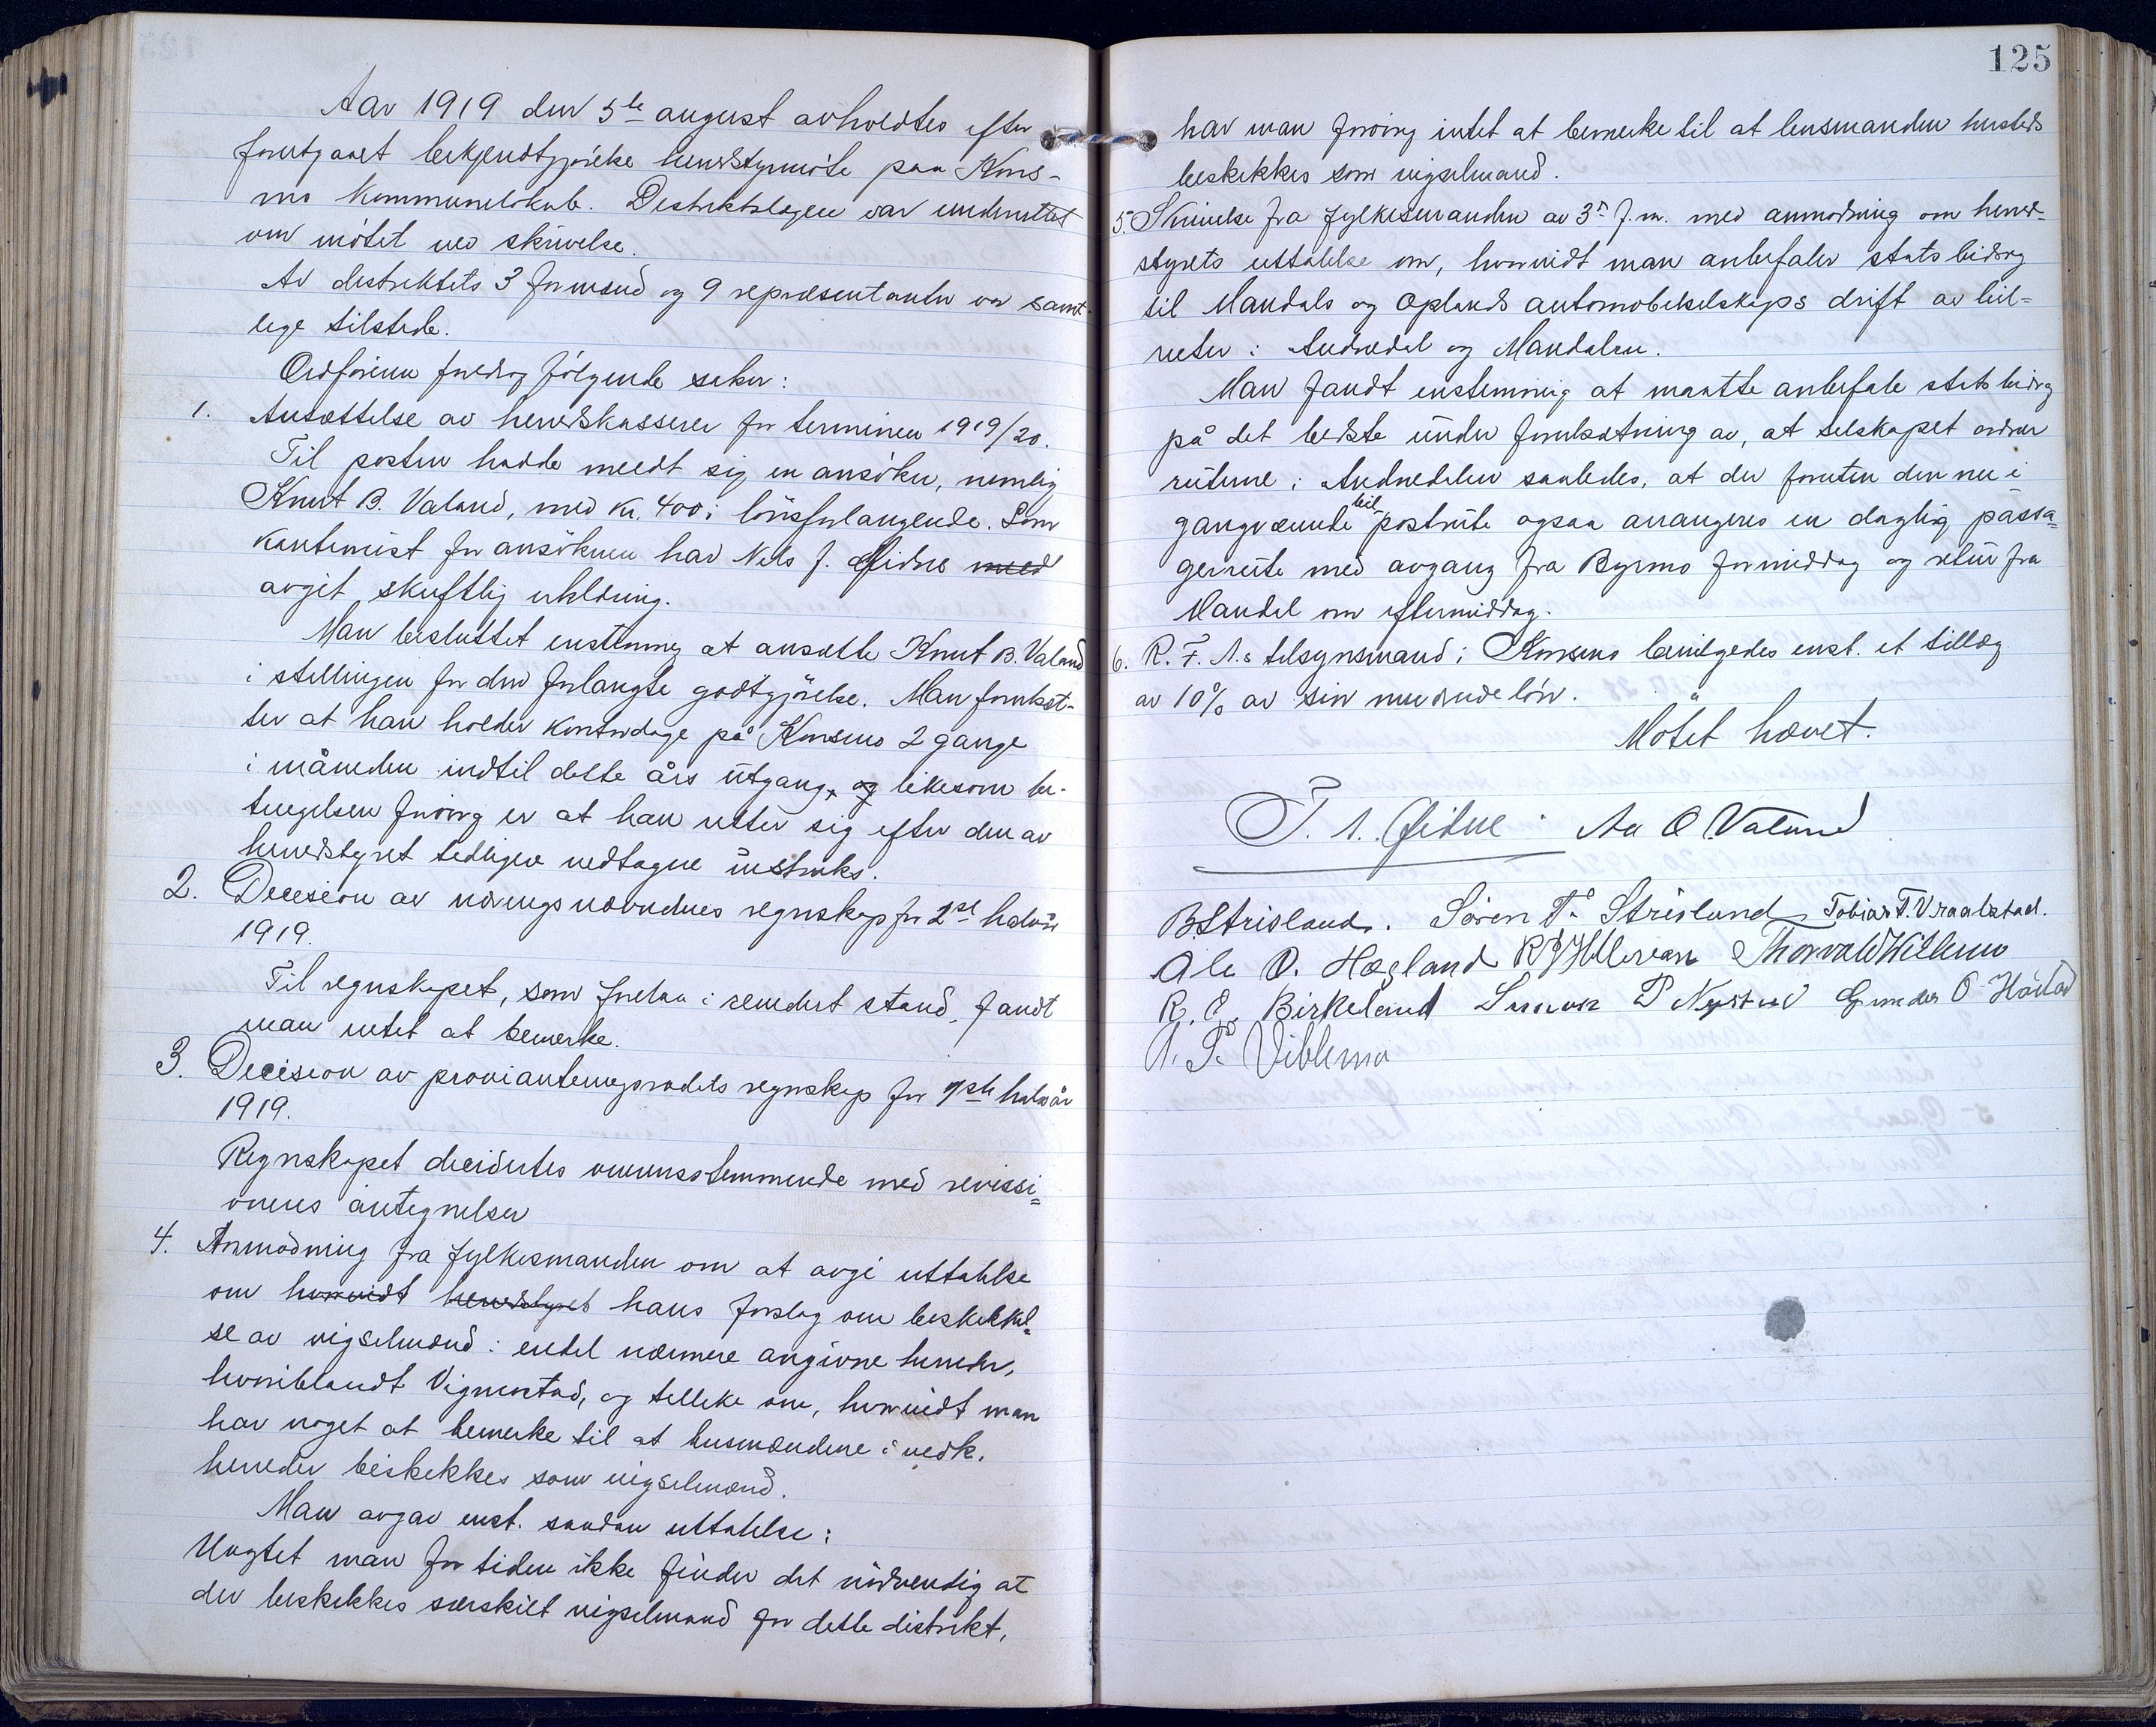 Aar 1919 den 5te august avholdtes efter
forutgaaet bekjendtgjörelse herredstyrmöte paa Kons-
mo kommunelokale. Destriktslægen var underrettet
om mötet ved skrivelse.
Av destriktets 3 formænd og 9 repræsentanter var samt-
lige tilstede.
Ordföreren foredrog fölgende saker:
1. Ansættelse av herredskasserer for terminen 1919/20.
Til posten hadde meldt sig en ansöker, nemlig
Knut B. Valand, med kr. 400 i lönsforlangende. Som
kautionist for ansökeren har Nils J. Øidne med
avgit skriftlig erklæring.
Man besluttet enstemmig at ansætte Knut B. Valand
i stillingen for den forlangte godtgjörelse. Man forutsæt-
ter at han holder kontordage på Konsmo 2 gange
i måneden indtil dette års utgang, og likesom be-
tingelsen forövrig er at han retter sig efter den av
herredstyret tidligere vedtagne instruks.
2. Decision av næringsnævndnes regnskap for 2det halvår
1919.
Til regnskapet, som forelaa i revidert stand, fandt
man intet at bemerke.
3. Decision av provianteringsrådets regnskap for 1ste halvår
1919.
Regnskapet decidertes overensstemmende med revissi=
onens antegnelser
4. Anmodning fra fylkesmanden om at avgi uttalelse
om hvorvidt herredstyret hans forslag om beskikkel=
se av vigselmænd i endel nærmere angivne herreder,
hvoriblandt Vigmostad, og tillike om, hvorvidt man
har noget at bemerke til at lensmændene i vedk.
herreder beskikkes som vigselmænd.
Man avgav enst. saadan uttalelse:
Uagtet man for tiden ikke finder det nödvendig at
der beskikkes særskilt vigselmand for dette distrikt,
125
har man forövrig intet at bemerke til at lensmanden hersteds
beskikkes som vigselmand.
5. Skrivelse fra fylkesmanden av 3. f.m. med anmodning om herred-
styrets uttalelse om, hvorvidt man anbefaler statsbidrag
til Mandals og Oplands automobilselskaps drift av bil=
ruter i Audnedal og Mandalen.
Man fandt enstemmig at maatte anbefale statsbidrag
på det bedste under forutsætning av, at selskapet ordner
rutene i Audnedalen saaledes, at der foruten den nu i
gangværende bil-postrute ogsaa arrangeres en daglig passa=
gerrute med avgang fra Byrmo formiddag og retur fra
Mandal om eftermiddag.
6. R. F. A.s tilsynsmand i Konsmo bevilgedes enst. et tillæg
av 10% av sin nuværende lön.
Mötet hævet.
T. A. Øidne Aa O. Valand
B. Strisland. Sören T. Strisland Tobias T. Vraalstad.
Ole O. Hægland R J Helleren Thorvald Villemo
R. O. Birkeland Simon P Nystad Gunder O Håstad
A. P. Viblemo